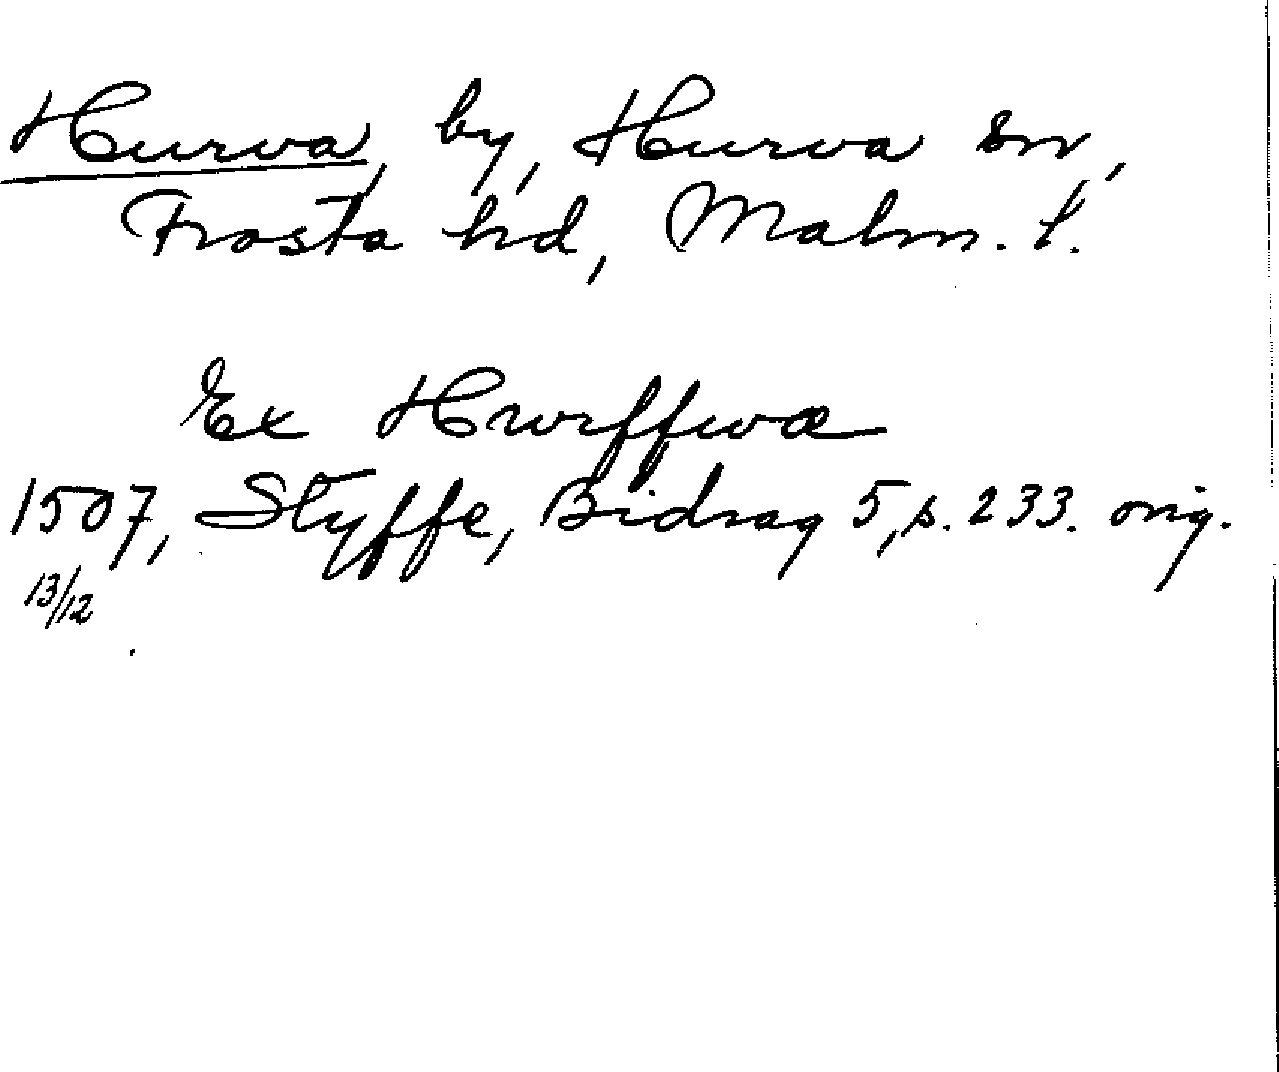 Hurva, by, Hurva sn,
Frosta hd, Malm. l.
Ex Hwrffwæ
1507, Styffe, Bidrag 5, s. 233. orig.
13/12